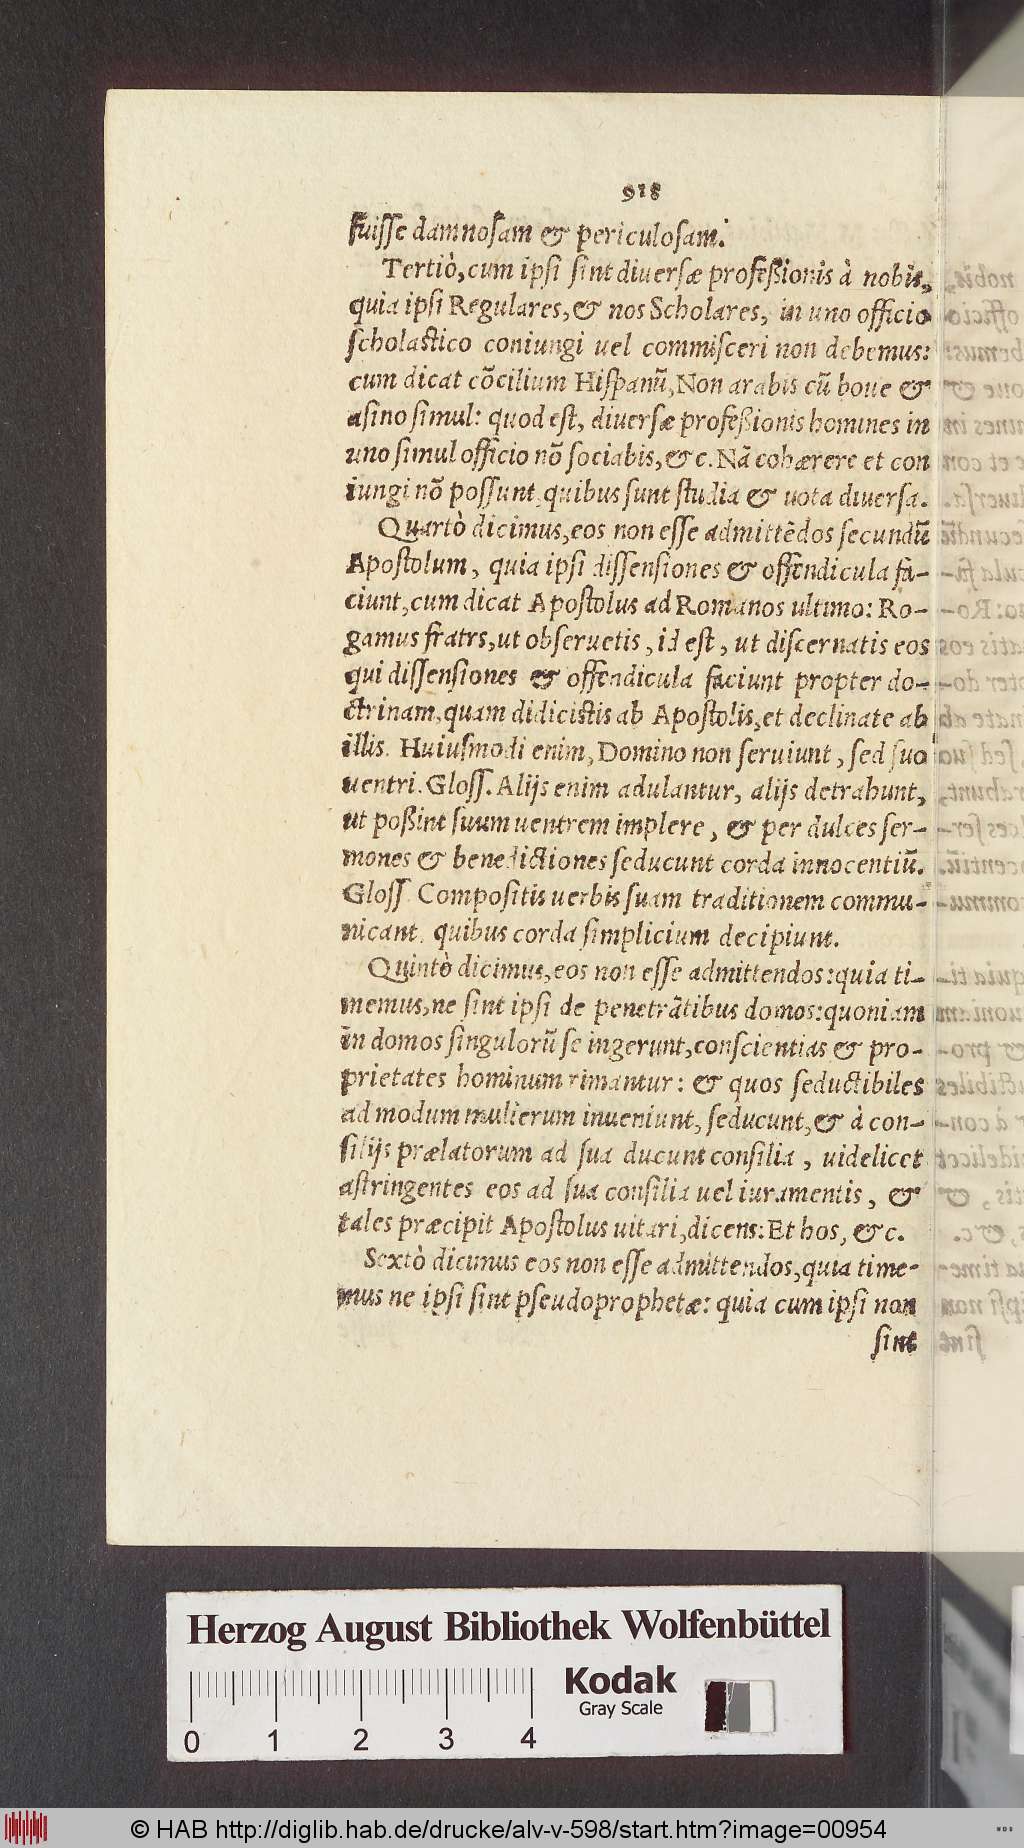 918
fuiſſe damnoſam & periculoſam.
Tertiò, cum ipſi ſint diuerſæ profeßionis à nobis,
quia ipſi Regulares, & nos Scholares, in uno officio
ſcholaſtico coniungi uel commiſceri non debemus:
cum dicat cõcilium Hiſpanũ, Non arabis cũ boue &
aſino ſimul: quod eſt, diuerſæ profeßionis homines in
uno ſimul officio nõ ſociabis, &c. Nã cohærere et con
iungi nõ poſſunt, quibus ſunt ſtudia & uota diuerſa.
Quartò dicimus, eos non eſſe admittẽdos ſecundũ
Apoſtolum, quia ipſi diſſenſiones & offendicula fa-
ciunt, cum dicat Apoſtolus ad Romanos ultimo: Ro-
gamus fratrs, ut obſeruetis, id eſt, ut diſcernatis eos
qui diſſenſiones & offendicula faciunt propter do-
ctrinam, quam didiciſtis ab Apoſtolis, et declinate ab
illis. Huiuſmodi enim, Domino non ſeruiunt, ſed ſuo
uentri. Gloſſ. Alijs enim adulantur, alijs detrahunt,
ut poßint ſuum uentrem implere, & per dulces ſer-
mones & benedictiones ſeducunt corda innocentiũ.
Gloſſ. Compoſitis uerbis ſuam traditionem commu-
nicant, quibus corda ſimplicium decipiunt.
Quintò dicimus, eos non eſſe admittendos: quia ti-
memus, ne ſint ipſi de penetrãtibus domos: quoniam
in domos ſingulorũ ſe ingerunt, conſcientias & pro-
prietates hominum rimantur: & quos ſeductibiles
ad modum mulierum inueniunt, ſeducunt, & à con-
ſilijs prælatorum ad ſua ducunt conſilia, uidelicet
aſtringentes eos ad ſua conſilia uel iuramentis, &
tales præcipit Apoſtolus uitari, dicens: Et hos, &c.
Sextò dicimus eos non eſſe admittendos, quia time-
mus ne ipſi ſint pſeudoprophetæ: quia cum ipſi non
ſint
Herzog August Bibliothek Wolfenbüttel
Kodak
Gray Scale
0 1 2 3 4
© HAB http://diglib.hab.de/drucke/alv-v-598/start.htm?image=00954